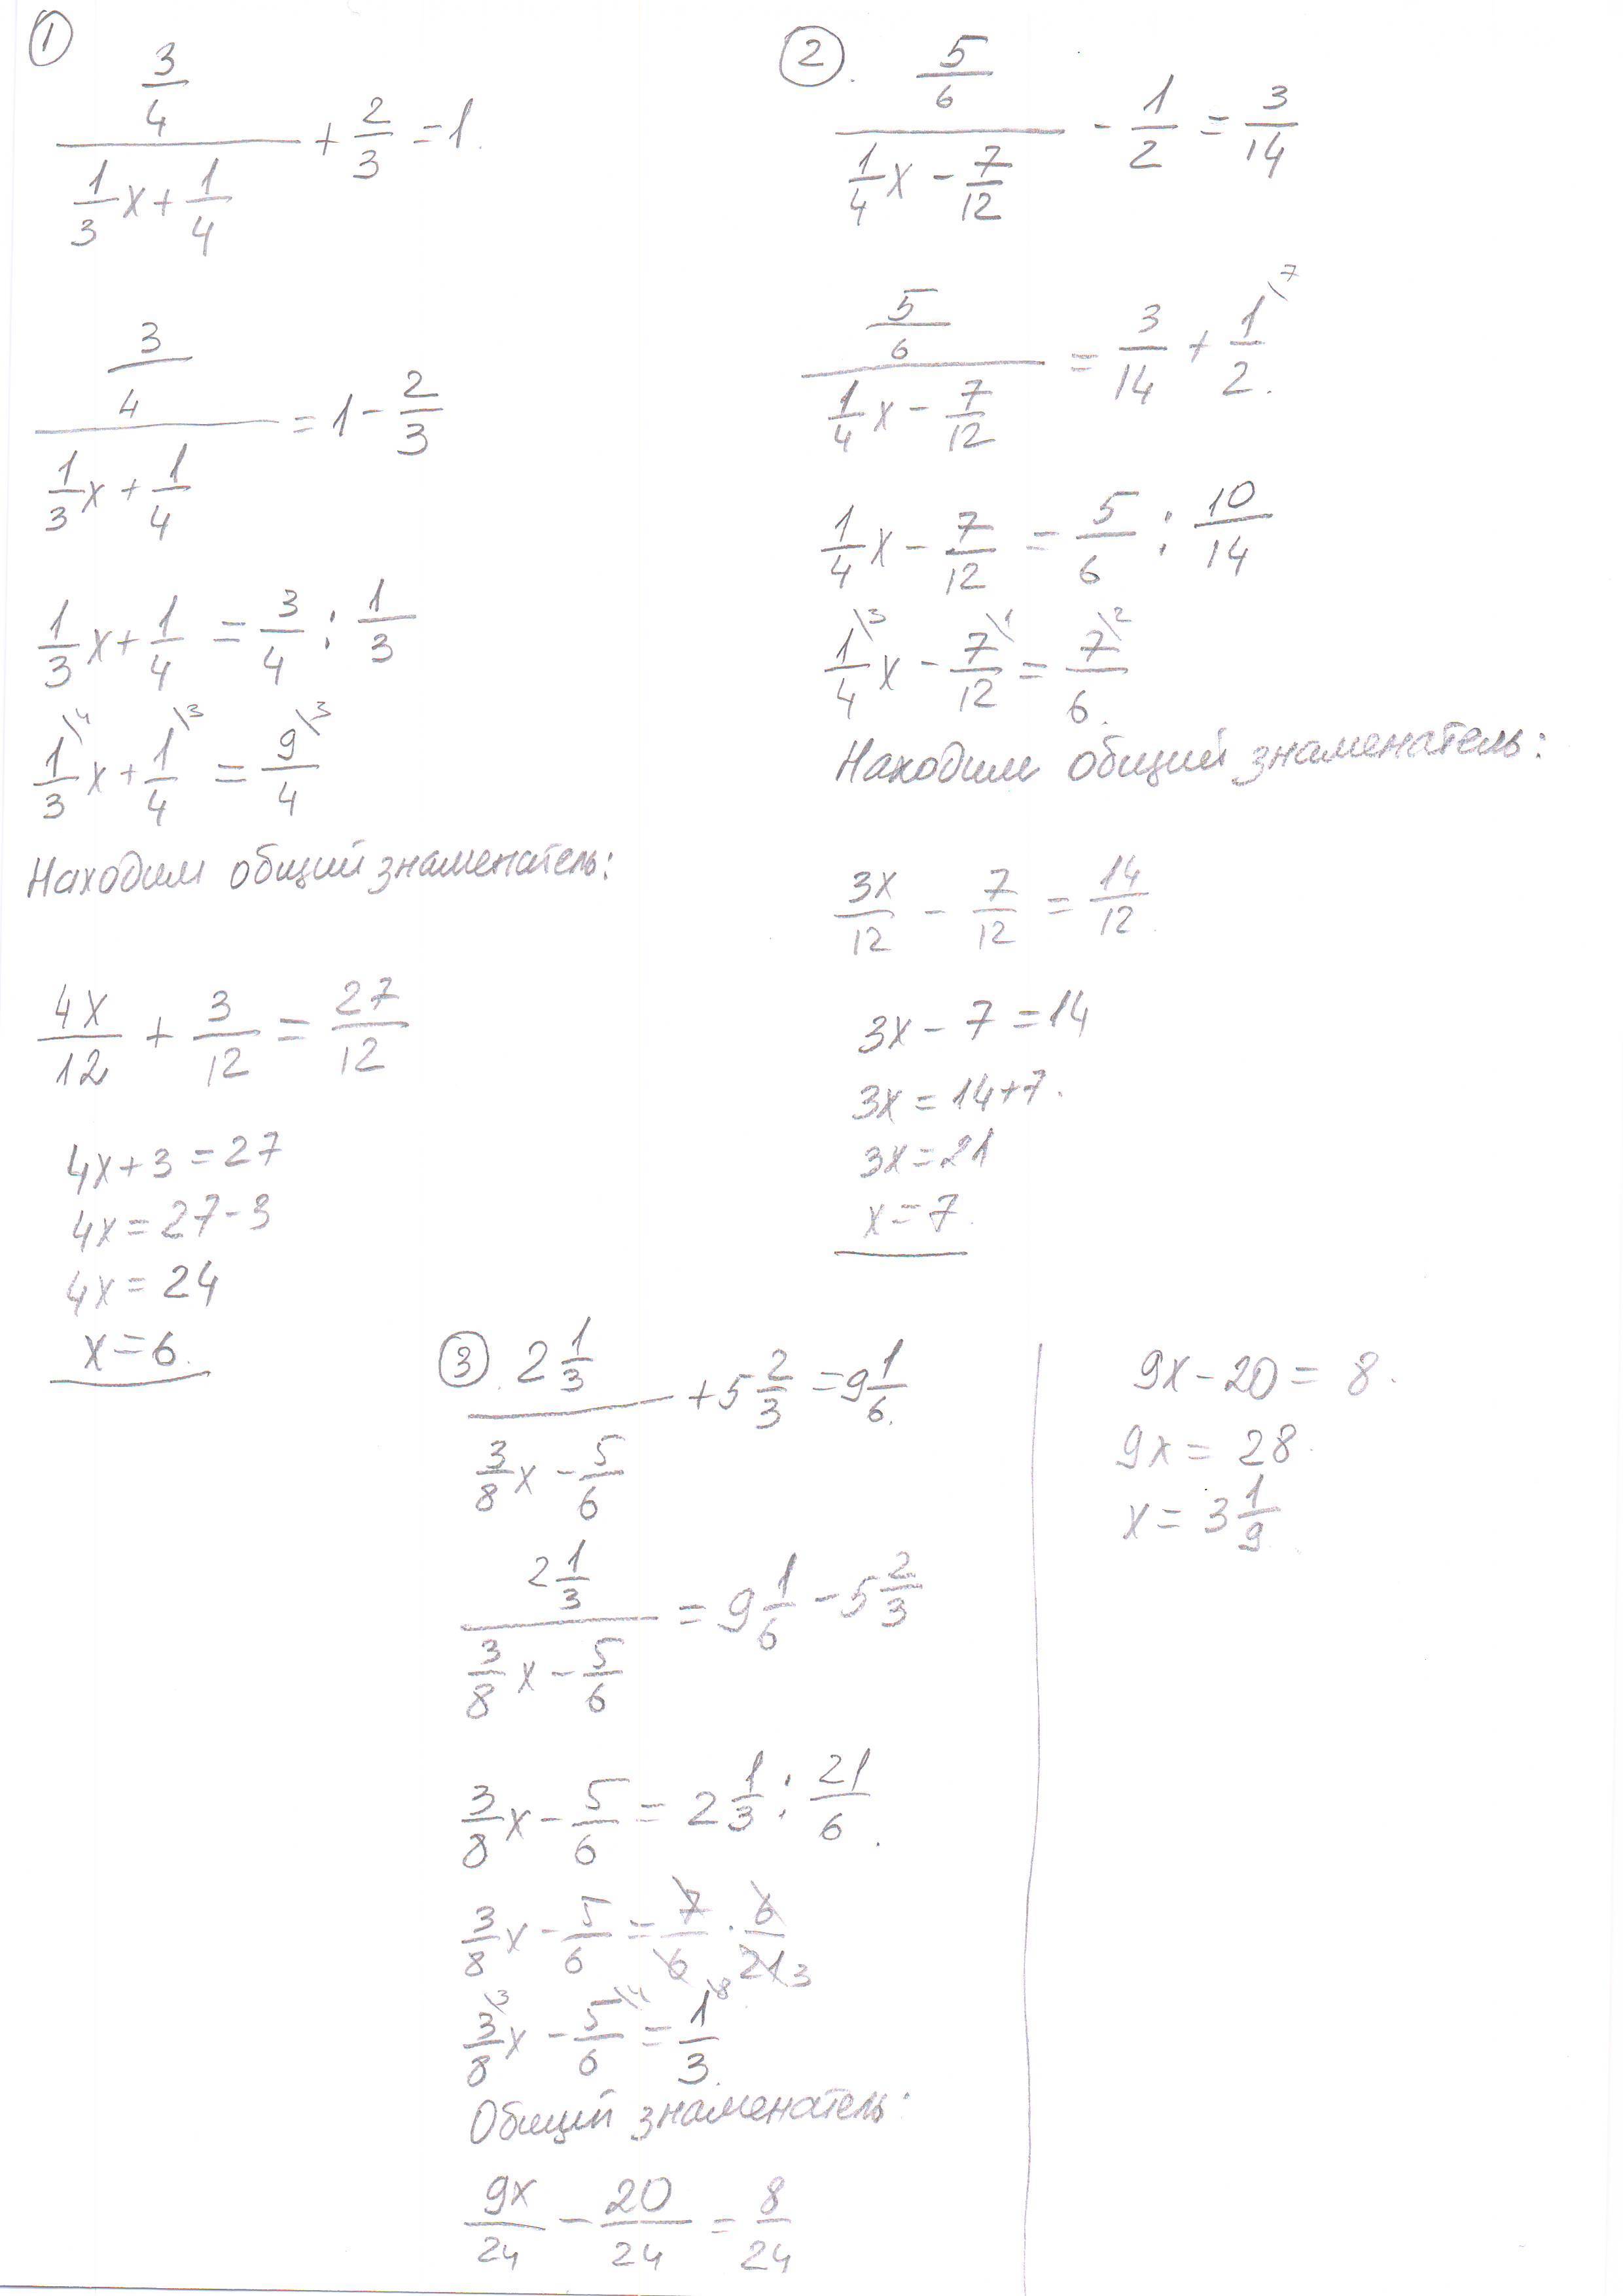 ①
3/4 / (1/3 x + 1/4) + 2/3 = 1.
3/4 / (1/3 x + 1/4) = 1 - 2/3
1/3 x + 1/4 = 3/4 : 1/3
1\4/3 x + 1\3/4 = 9\3/4
Находим общий знаменатель:
4x/12 + 3/12 = 27/12
4x + 3 = 27
4x = 27 - 3
4x = 24
x = 6.
②.
5/6 / (1/4 x - 7/12) - 1/2 = 3/14
5/6 / (1/4 x - 7/12) = 3/14 + 1\7/2.
1/4 x - 7/12 = 5/6 : 10/14
1\3/4 x - 7\1/12 = 7\2/6.
Находим общий знаменатель:
3x/12 - 7/12 = 14/12.
3x - 7 = 14
3x = 14 + 7.
3x = 21
x = 7.
③.
2 1/3 / (3/8 x - 5/6) + 5 2/3 = 9 1/6.
2 1/3 / (3/8 x - 5/6) = 9 1/6 - 5 2/3
3/8 x - 5/6 = 2 1/3 : 21/6.
3/8 x - 5/6 = 7/6 · 6/21 3
3\3/8 x - 5\4/6 = 1\8/3.
Общий знаменатель:
9x/24 - 20/24 = 8/24
9x - 20 = 8.
9x = 28.
x = 3 1/9.